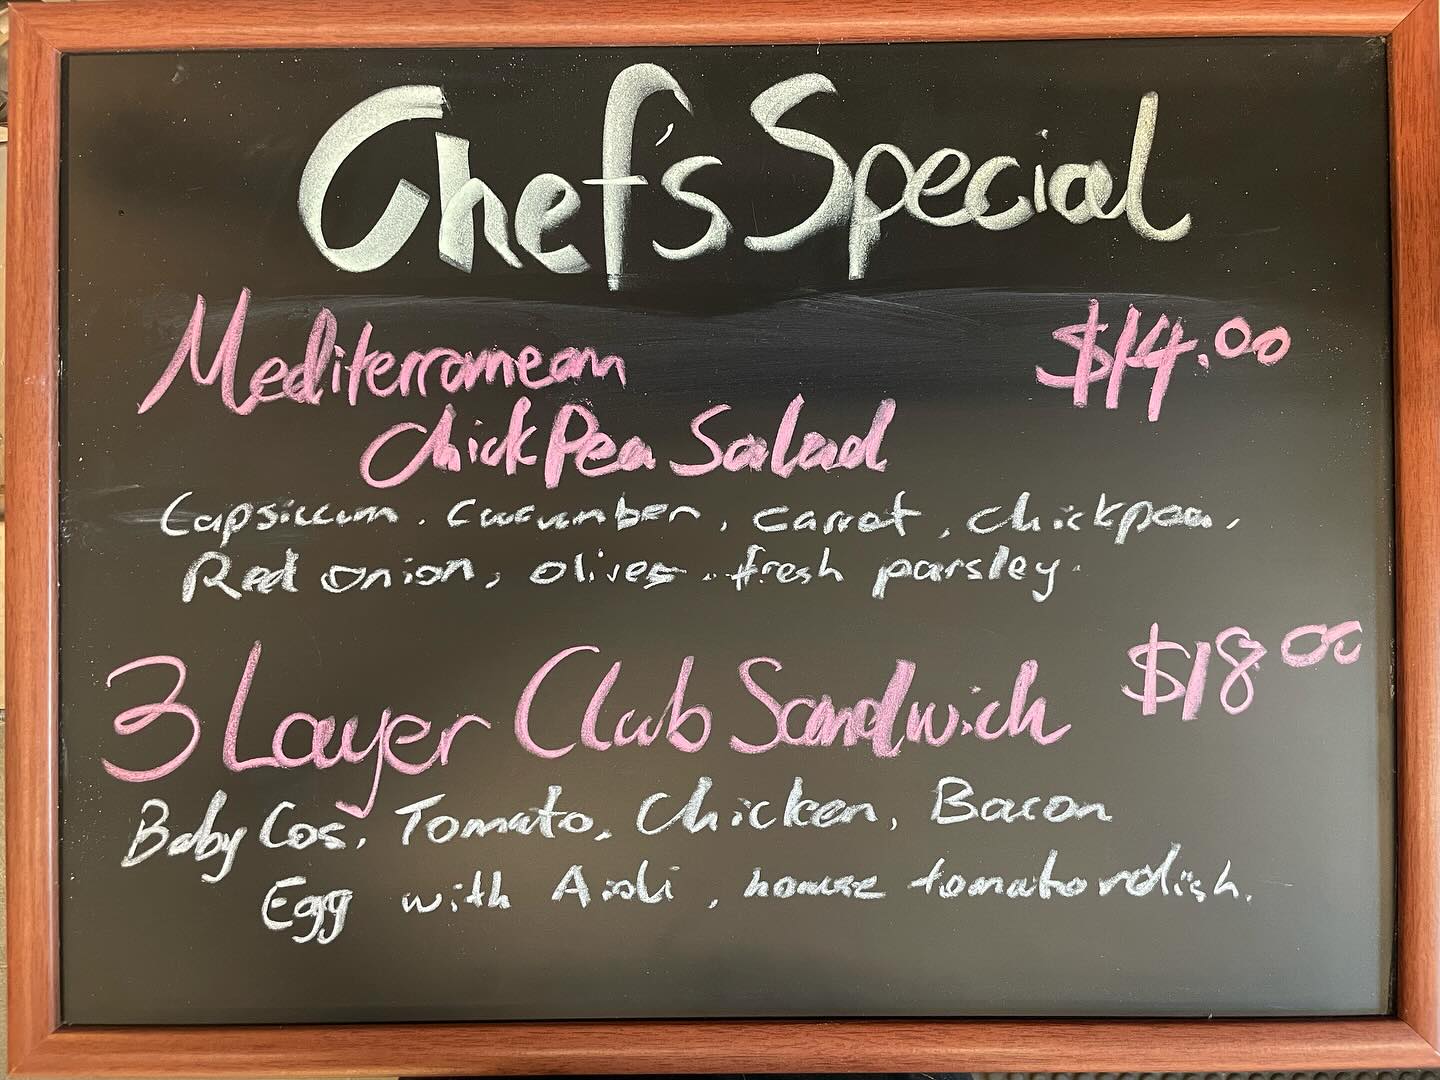 Chef's Special
Mediterranean $14.00
ChickPea Salad
Capsiccum, Cucumber, carrot, chickpea,
Red onion, olives, fresh parsley.
3 Layer Club Sandwich $18.00
Baby Cos, Tomato, Chicken, Bacon
Egg with Aioli, house tomato relish.